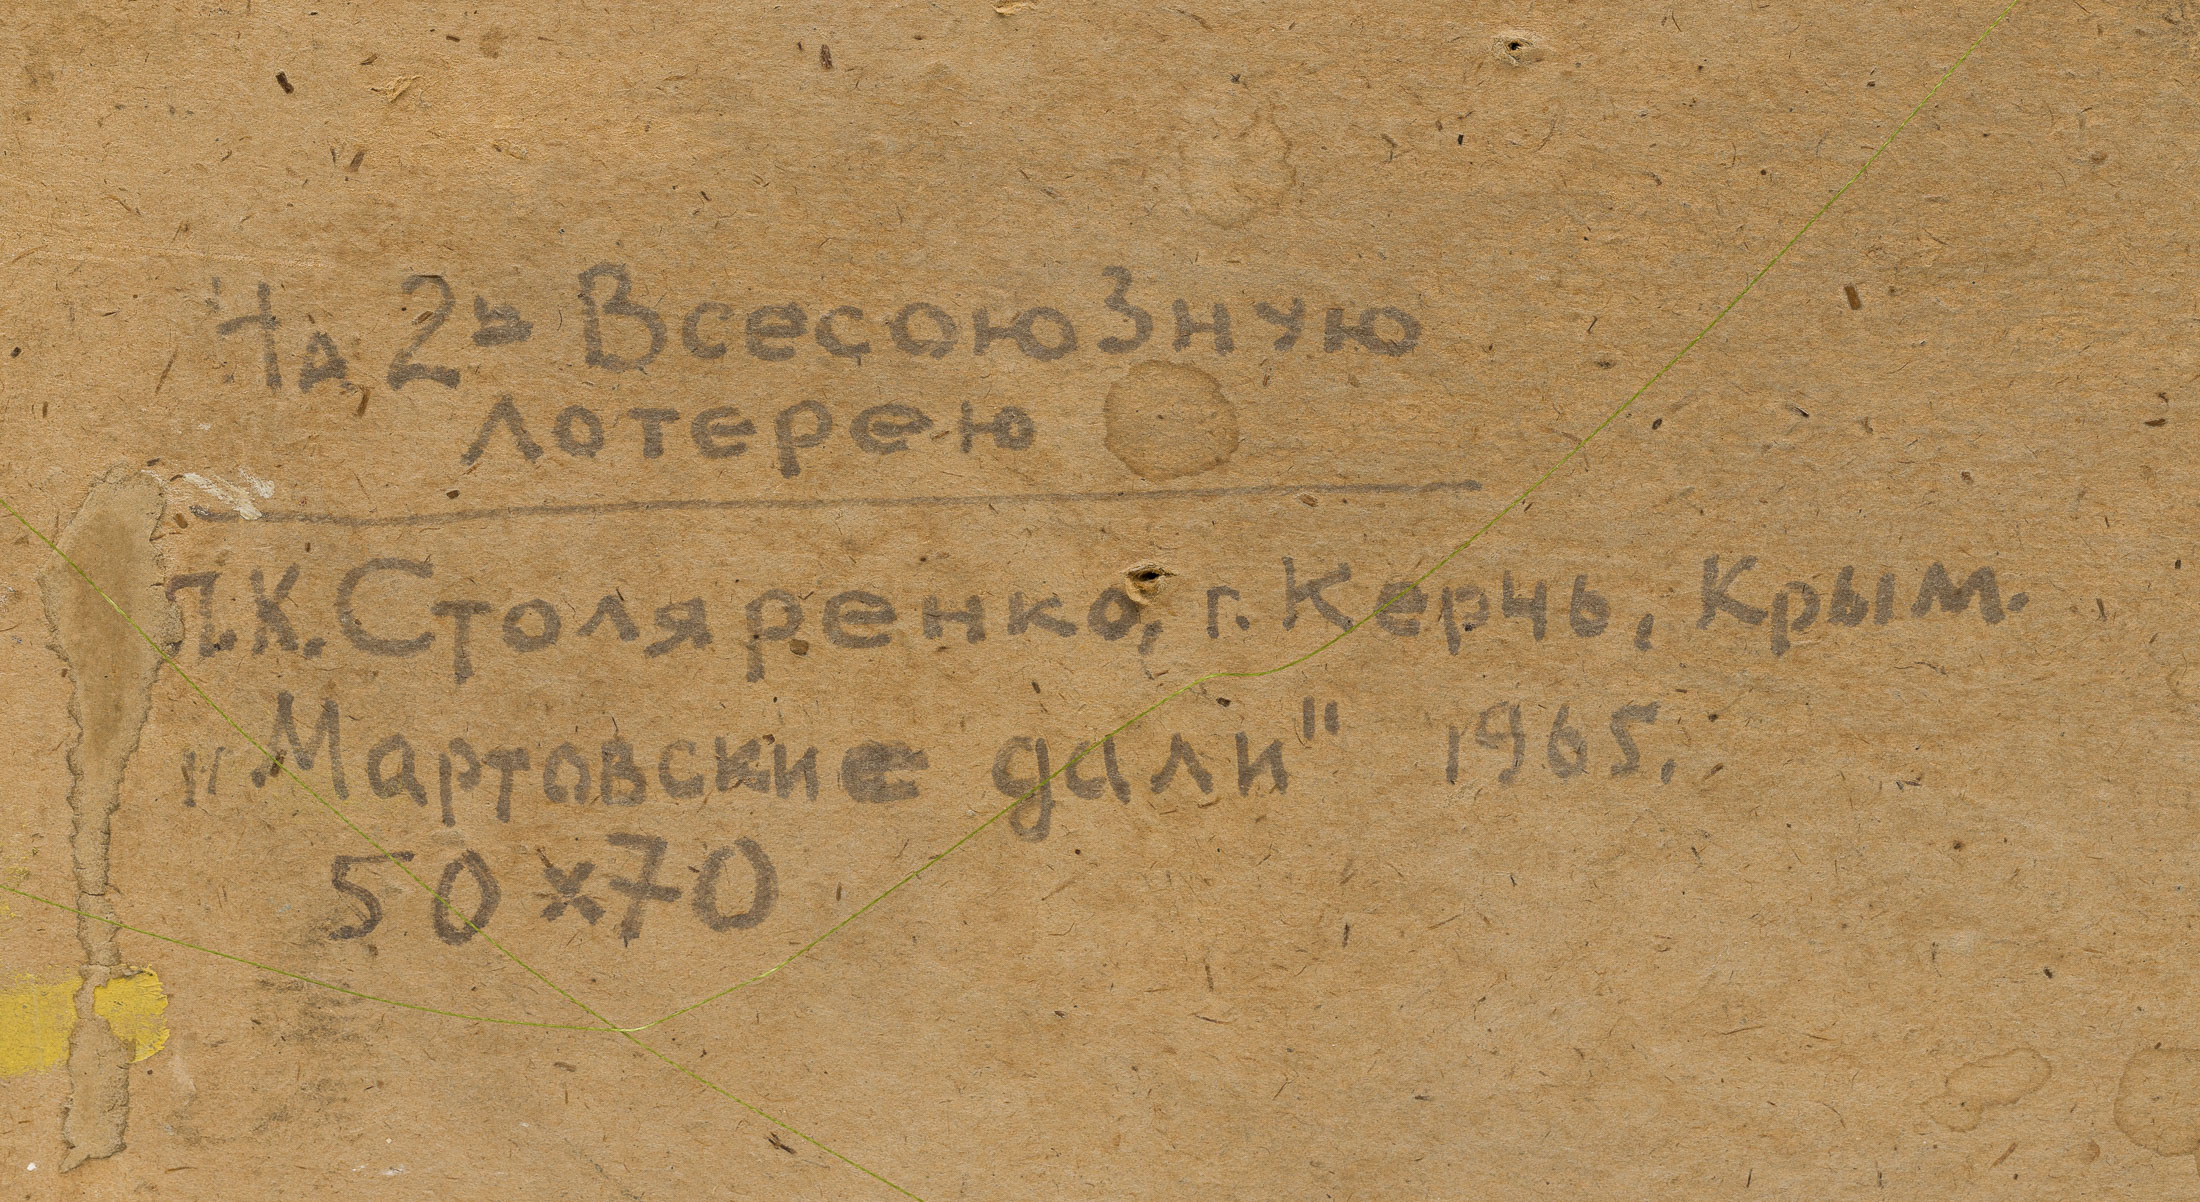 На 2ю Всесоюзную
лотерею
П.К. Столяренко, г. Керчь, Крым.
„Мартовские дали" 1965.
50×70